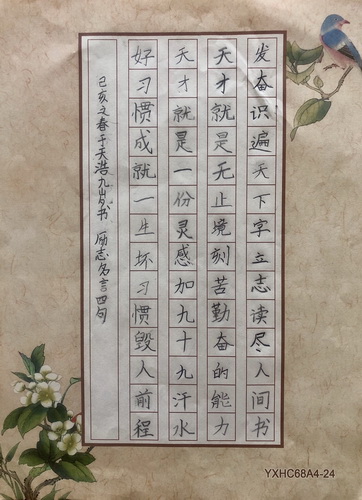 发奋识遍天下字立志读尽人间书
天才就是无止境刻苦勤奋的能力
天才就是一份灵感加九十九汗水
好习惯成就一生坏习惯毁人前程
己亥之春于天浩九岁书 励志名言四句
YXHC68A4-24